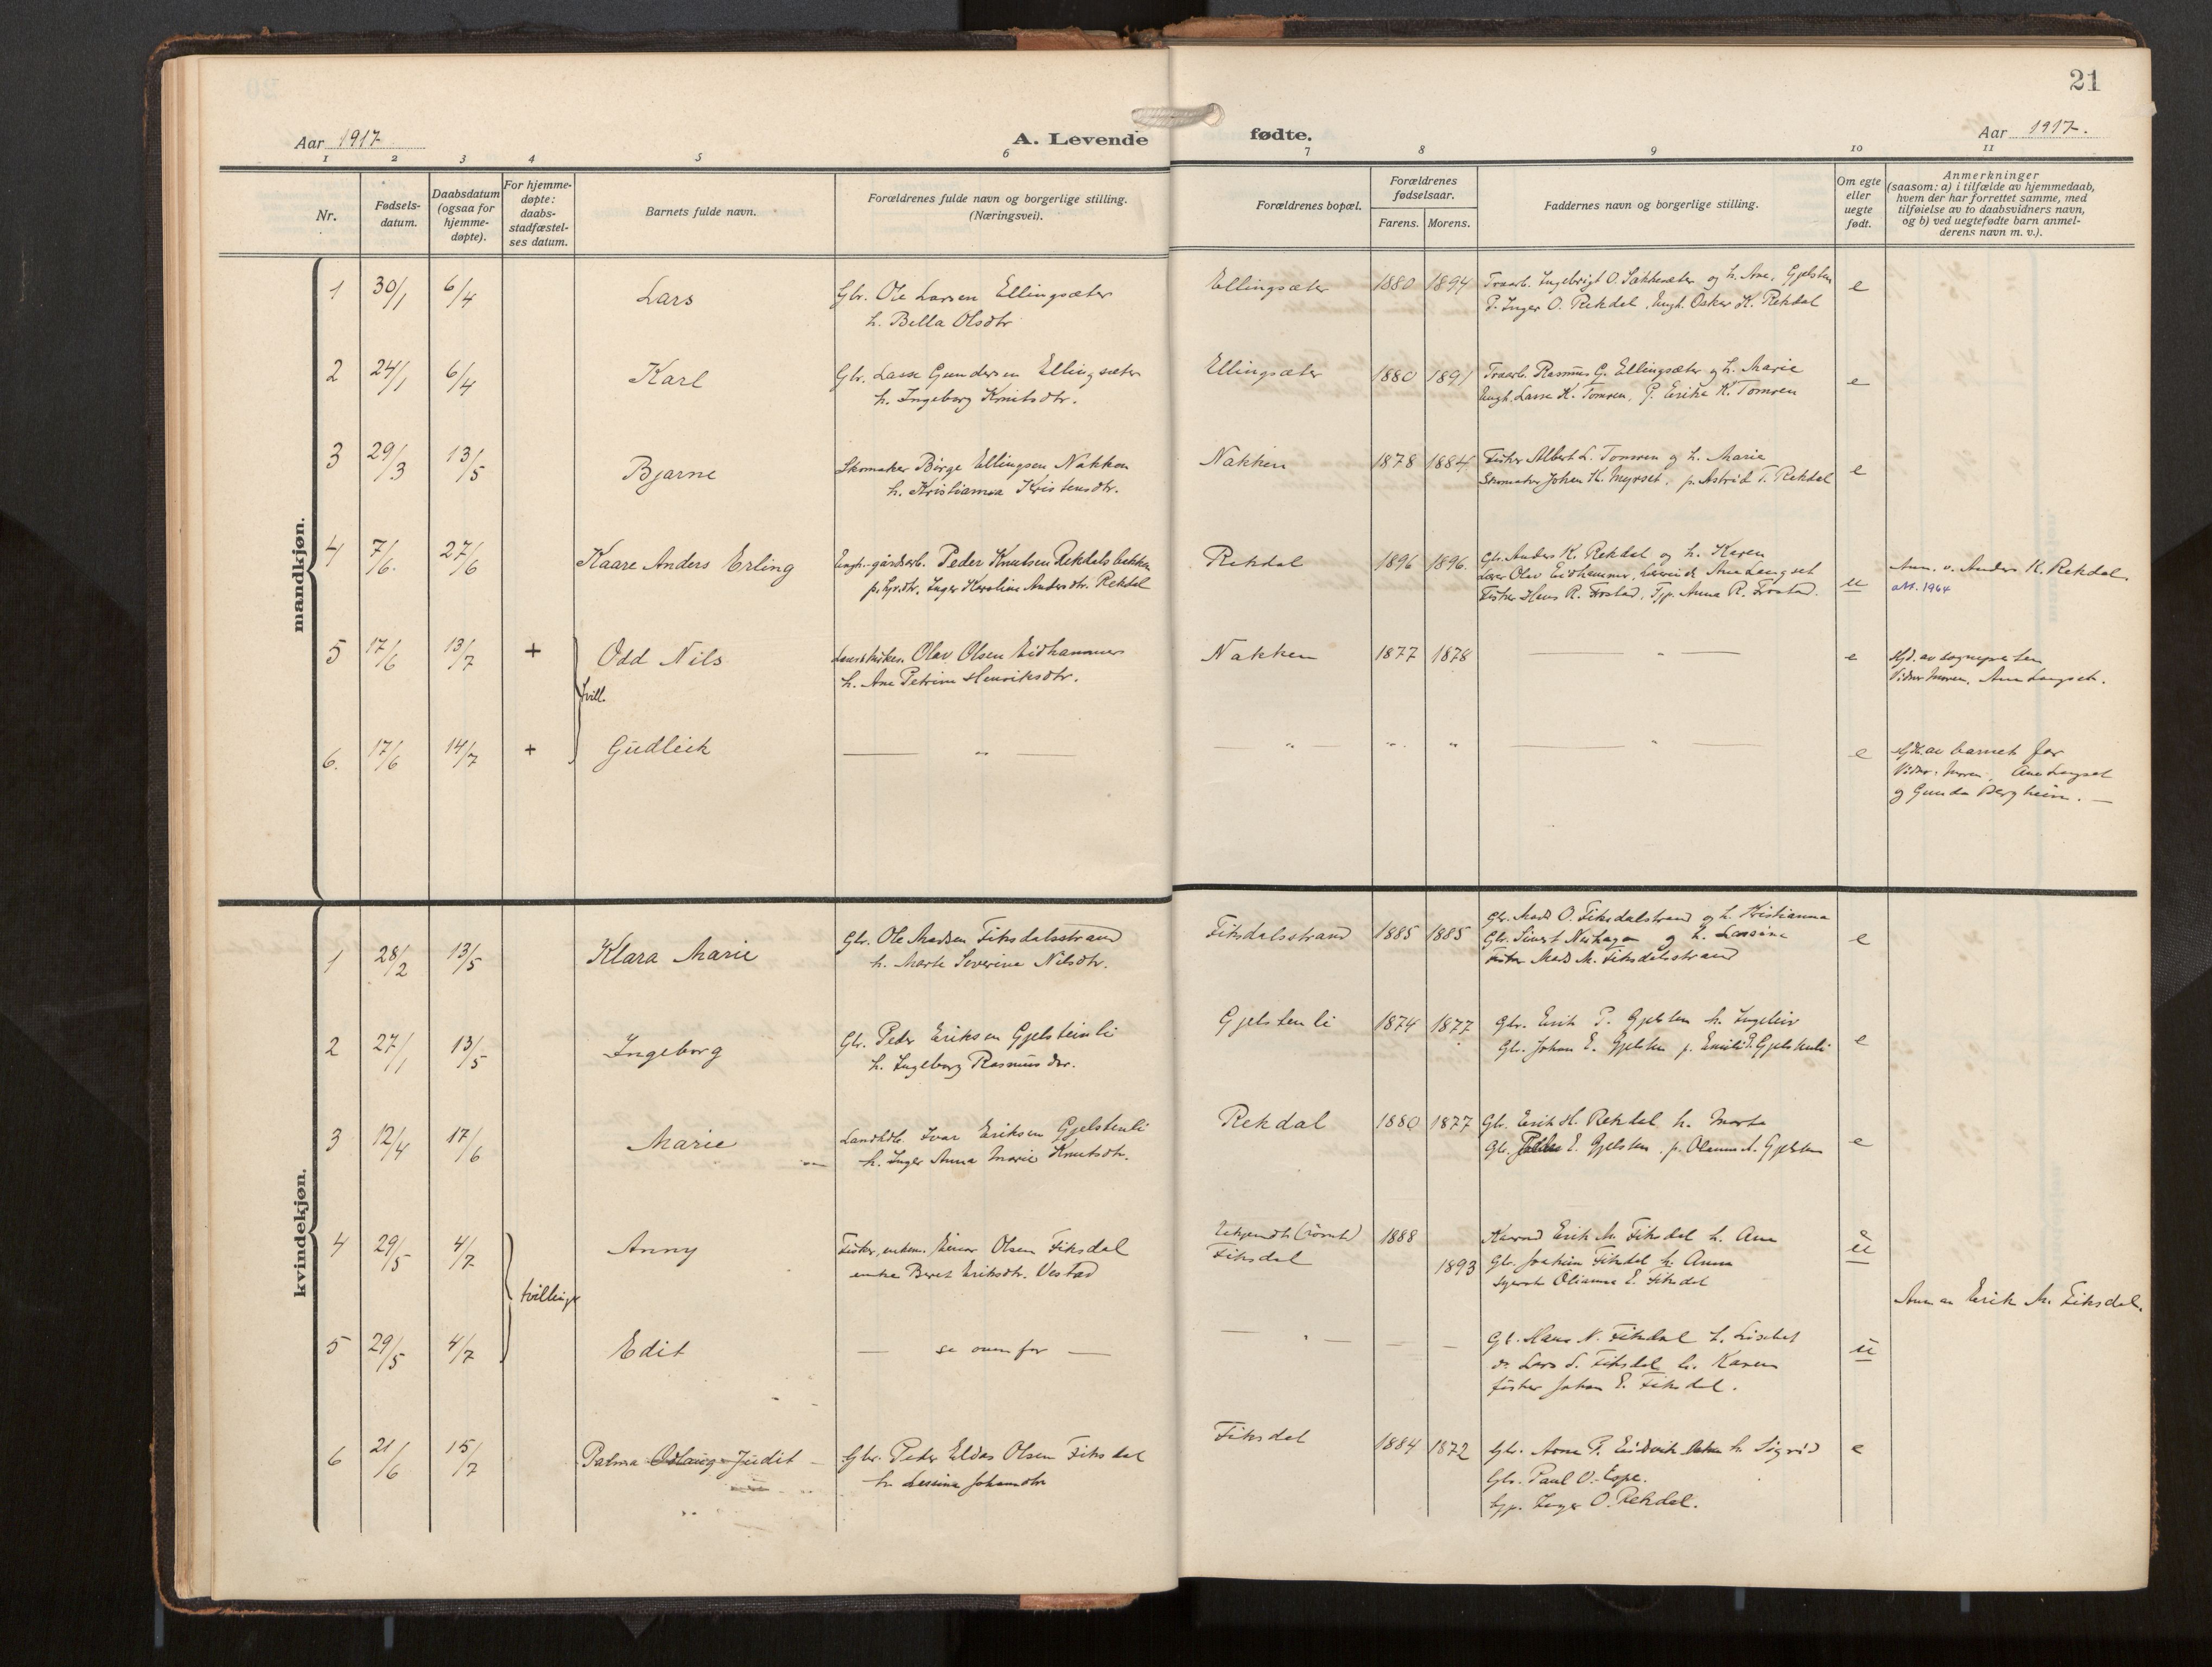 21
Aar 1917
A. Levende
fødte.
Aar 1917.
1 2 3 4 5 6 7 8 9 10 11
Nr.
Fødsels-
datum.
Daabsdatum
(ogsaa for
hjemme-
døpte).
For hjemme-
døpte:
daabs-
stadfæstel-
ses datum.
Barnets fulde navn.
Forældrenes fulde navn og borgerlige stilling.
(Næringsvei).
Forældrenes bopæl.
Forældrenes
fødselsaar.
Farens. Morens.
Faddernes navn og borgerlige stilling.
Om egte
eller
uegte
født.
Anmerkninger
(saasom: a) i tilfælde av hjemmedaab,
hvem der har forrettet samme, med
tilføielse av to daabsvidners navn,
og b) ved uegtefødte barn anmel-
derens navn m. v.).
mandkjøn.
1 30/1 6/4 Lars Gbr. Ole Larsen Ellingsæter Ellingsæter 1880 1894 Ingebrigt O. og h. Ane, Gjelsten e
h. Bella Olsdtr P. Inger O. Rekdal, Ungk. Oskar K. Rekdal
2 24/1 6/4 Karl Gbr. Lasse Gundersen Ellingsæter Ellingsæter 1880 1891 Rasmus G. Ellingsæter og h. Marie e
h. Ingeborg Knutsdtr. Ungk. Lasse K. Tomren, P. Erika K. Tomren
3 29/3 13/5 Bjarne Skomaker Børge Ellingsen Nakken Nakken 1878 1884 Fisker Albert L. Tomren og h. Marie e
h. Kristianna Kristensdtr. Skomaker Johan K. Myrset, p. Astrid T. Rekdal
4 7/6. 27/6 Kaare Anders Erling Ungk. gårdarb. Peder Knutsen Rekdalsbakken Rekdal 1896 1896. Gbr. Anders K. Rekdal og h. Karen u Anm. v. Anders K. Rekdal.
p. Inger Karoline Andersdtr. Rekdal Lærer Olav Eidhammer, Ane Langset att. 1964
Fisker Hans R. Frostad, Tjp. Anna R. Frostad.
5 17/6 13/7 + Odd Nils Olav Olsen Eidhammer Nakken 1877 1878 — " — e Hjd. av sognepresten
tvill. h. Ane Petrine Henriksdtr. Vidner Moren, Ane Langset.
6. 17/6 14/7 + Gudleik — " — — " " " — " — e Hjd. av barnets far
Vidner: Moren, Ane Langset
og Gunda Bergheim. —
kvindekjøn.
1 28/2 13/5 Klara Marie Gbr. Ole Madsen Fiksdalsstrand Fiksdalsstrand 1885 1885 Gbr. Mads O. Fiksdalstrand og h. Kristianna e
h. Marte Severine Nilsdtr. Gbr. Sivert Nerhagen og h. Lassine
Fisker Mads M. Fiksdalsstrand
2 27/1 13/5 Ingeborg Gbr. Peder Eriksen Gjelstenli Gjelstenli 1874 1877 Gbr. Erik P. Gjelsten h. Ingeleiv e
h. Ingeborg Rasmusdtr. Gbr. Johan E. Gjelsten p. Emilie P. Gjelstenli
3 12/4 17/6 Marie Landhdl. Ivar Eriksen Gjelstenli Rekdal 1880 1877 Gbr. Erik H. Rekdal h. Marta e
h. Inger Anna Marie Knutsdtr. Gbr. E. Gjelsten, p. A. Gjelsten
4 29/5 4/7 Anny Fisker, enkem. Einar Olsen Fiksdal 1888 Erik M. Fiksdal h. Ane u
enke Beret Eriksdtr. Vestad Fiksdal 1893 Gbr. Joakim Fiksdal h. Anna
tvillinger Olianna E. Fiksdal
Anm av Erik M. Fiksdal.
5 29/5 4/7 Edit — se ovenfor — — " — — — Gb. Hans N. Fiksdal h. Lisebet u
Lars L. Fiksdal h. Karen
fisker Johan E. Fiksdal.
6 21/6 15/7 Palma Odlaug Judit Gbr. Peder Eldas Olsen Fiksdal Fiksdal 1884 1872 Gbr. Arne P. Eidsvik h. Sigrid e
h. Lassina Johansdtr Gbr. Paul O. Espe.
tjp. Inger O. Rekdal.